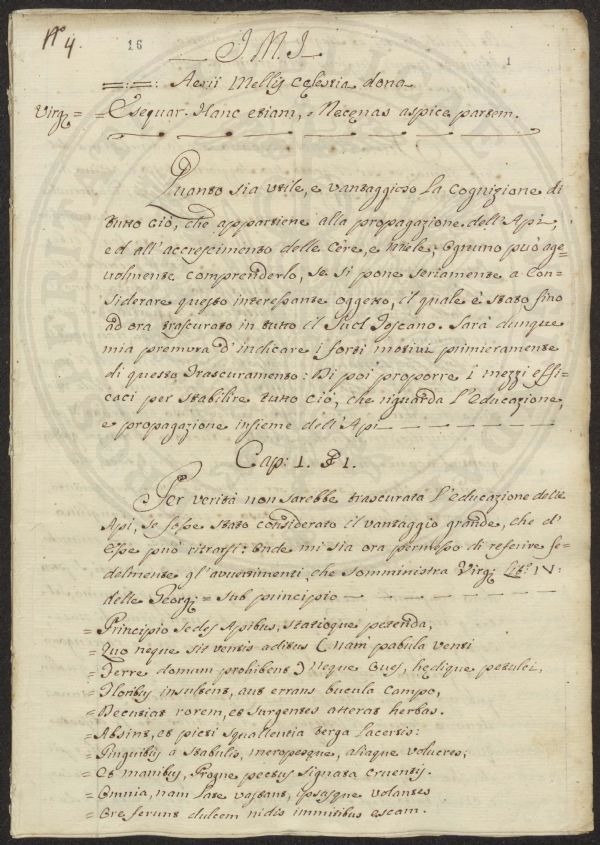 N.º 4.
16
1
J. M. J.
Aerii Mellis cęlestia dona
Virg: = = Exequar. Hanc etiam, Mecęnas aspice partem.
Quanto sia utile, e vantaggioso la Cognizione di
tutto ciò, che appartiene alla propagazione dell'Api,
ed all'accrescimento delle Cère, e Miele, Ognuno può age-
volmente comprenderlo, se si pone seriamente a Con-
siderare questo interessante oggetto, il quale è stato fino
ad ora trascurato in tutto il Suol Toscano. Sarà dunque
mia premura d'indicare i forti motivi primieramente
di questo Trascuramento: Di poi proporre i mezzi effi-
caci per stabilire tutto ciò, che riguarda l'Educazione,
e propagazione insieme dell'Api
Cap: 1. § 1.
Per verità non sarebbe trascurata l'educazione delle
Api, se fosse stato considerato il vantaggio grande, che d'
Esse può ritrarsi: Onde mi sia ora permesso di referire fe-
delmente gl'avvertimenti, che somministra Virg: Lib.º IV:
delle Georg: = sub principio
= Principio sedes Apibus, statioque petenda,
= Quo neque sit ventis aditus (nam pabula venti
= Ferre domum prohibent) neque Oues, hędique petulci,
= Floribus insultent, aut errans bucula campo,
= Decutiat rorem, et surgentes atterat herbas.
= Absint, et picti squallentia terga lacerti:
= Pinguibus a stabulis, meropesque, aliaque volucres;
= Et manibus, Progne pectus signata cruentis.
= Omnia, nam late vastant, ipsasque volantes
= Ore ferunt dulcem nidis immitibus escam.